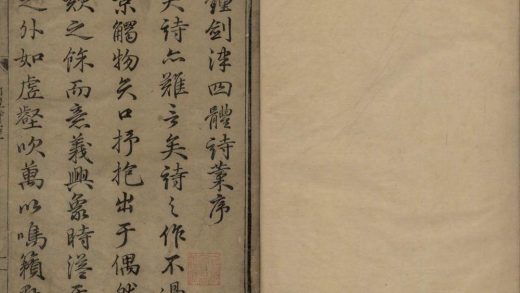 鍾劍津四體詩業序
夫詩亦難言矣詩之作不過
景觸物矢口抒抱出于偶然
欬之餘而意義興象時溢于
之外如虛壑吹萬以鳴籟